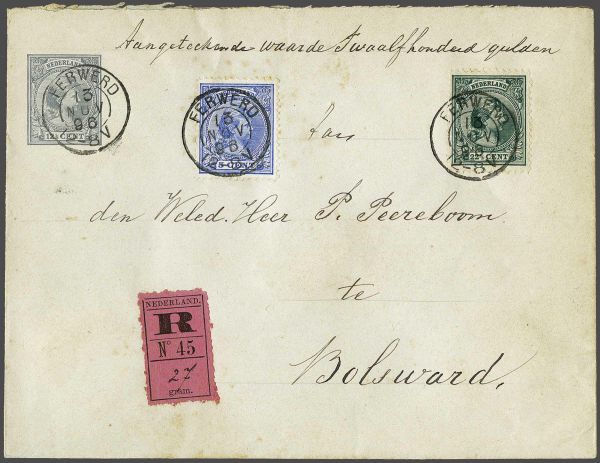 Aangeteekende waarde Twaalfhonderd gulden
NEDERLAND
12½ CENT
FERWERD
13
NOV
96
8V
FERWERD
13
NOV
96
12-8V
5 CENT
NEDERLAND
25 CENT
FERWERD
12-8V
Aan
den Weled. Heer P. Peereboom
te
Bolsward.
NEDERLAND.
R
No 45
27
gram.